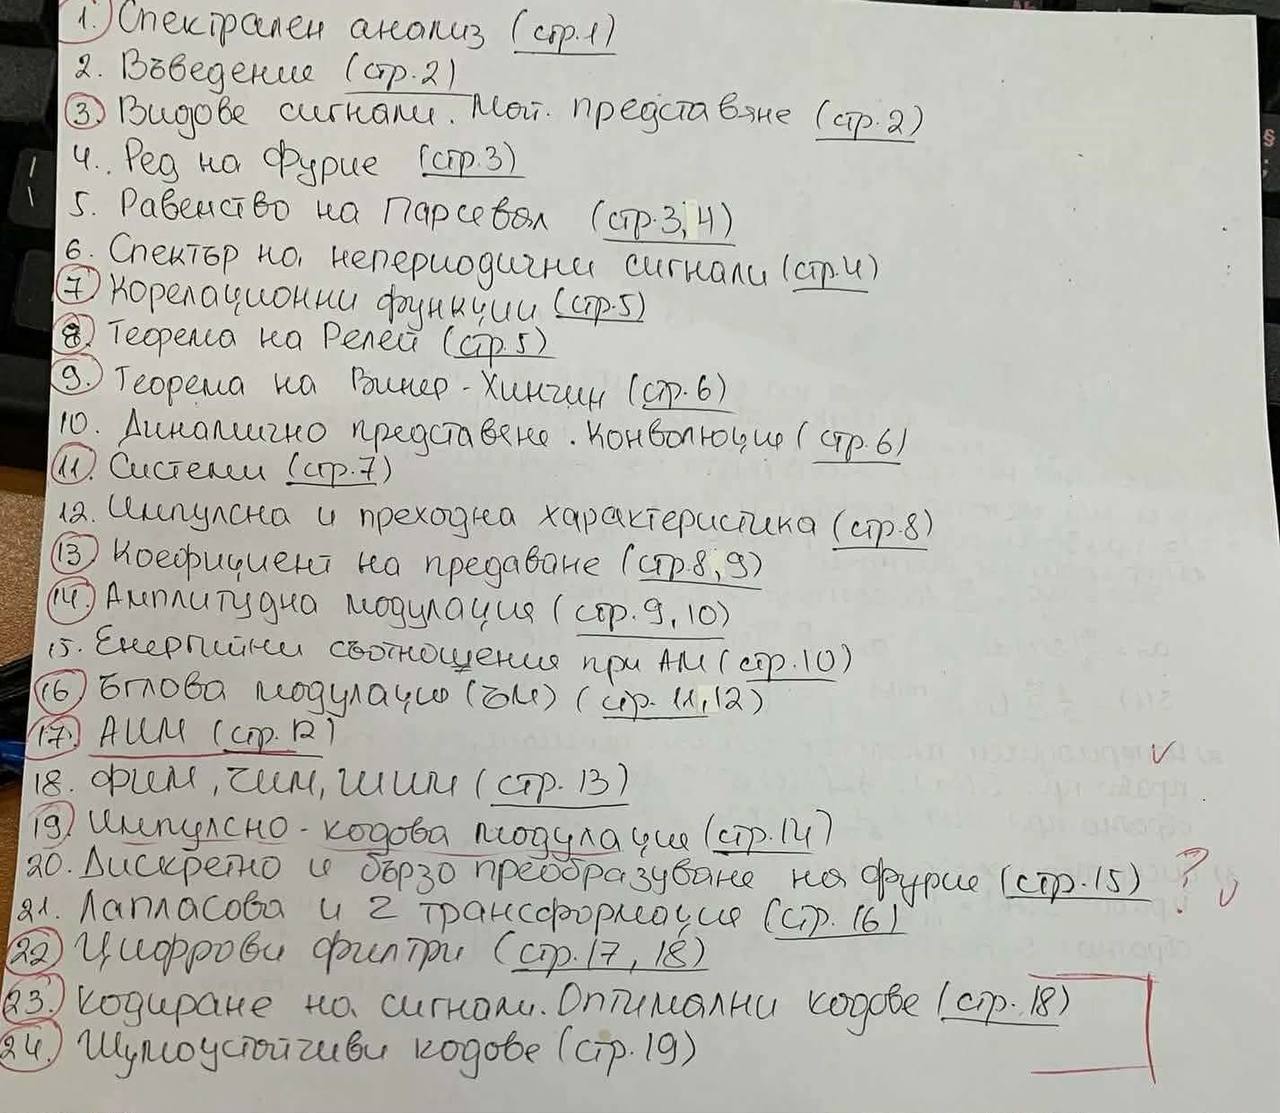 1. Спектрален анализ (стр.1)
2. Въведение (стр.2)
3. Видове сигнали. Мат. представяне (стр.2)
4. Ред на Фурие (стр.3)
5. Равенство на Парсевал (стр.3,4)
6. Спектър на непериодични сигнали (стр.4)
7. Корелационни функции (стр.5)
8. Теорема на Релей (стр.5)
9. Теорема на Винер-Хинчин (стр.6)
10. Динамично представяне. Конволюция (стр.6)
11. Системи (стр.7)
12. Импулсна и преходна характеристика (стр.8)
13. Коефициент на предаване (стр.8,9)
14. Амплитудна модулация (стр.9,10)
15. Енергийни съотношения при АМ (стр.10)
16. Ъглова модулация (ЪМ) (стр. 11,12)
17. АИМ (стр.12)
18. ФИМ, ЧИМ, ШИМ (стр. 13)
19. Импулсно-кодова модулация (стр.14)
20. Дискретно и бързо преобразуване на Фурие (стр.15) ?
21. Лапласова и Z трансформация (стр. 16)
22. Цифрови филтри (стр.17, 18)
23. Кодиране на сигнали. Оптимални кодове (стр. 18)
24. Шумоустойчиви кодове (стр.19)